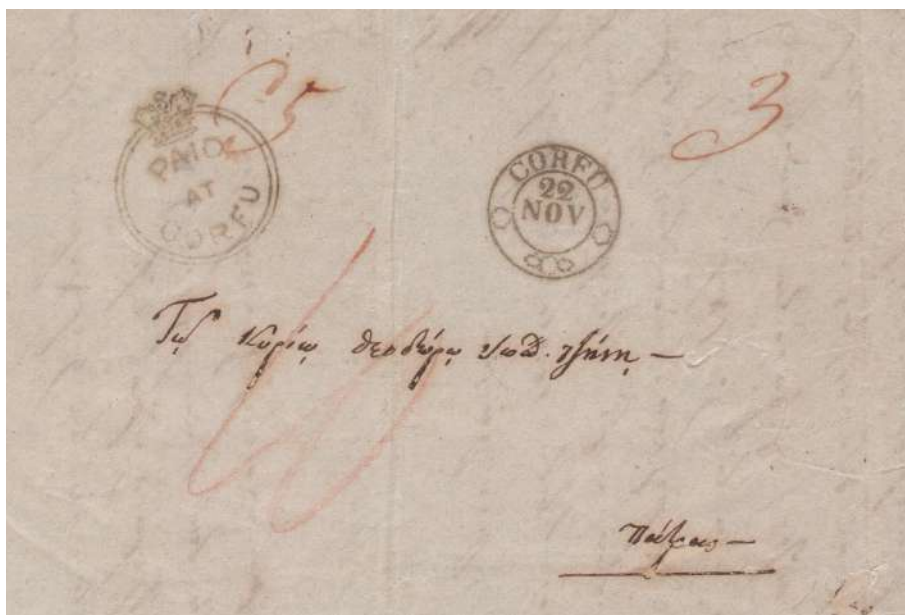 5
3
PAID
AT
CORFU
CORFU
22
NOV
Τῷ Κυρίῳ Θεοδώρῳ
Πάτρας